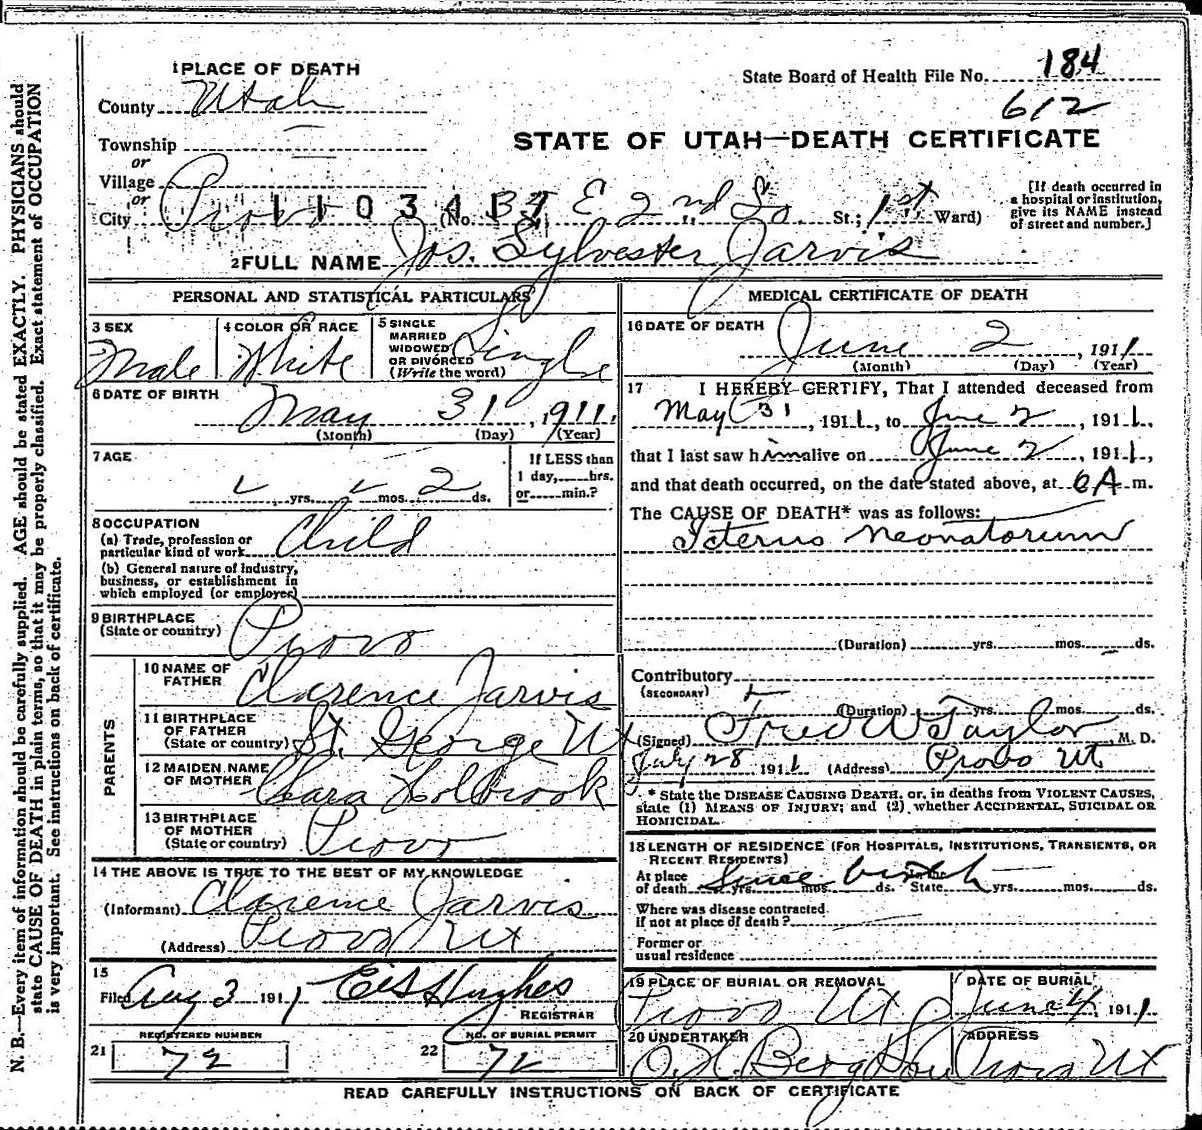 1 PLACE OF DEATH
State Board of Health File No. 184
County Utah
612
STATE OF UTAH—DEATH CERTIFICATE
Township —
or
Village
or
City Provo
1103417
(No. E 2nd So. St.; 1st Ward)
[If death occurred in a hospital or institution, give its NAME instead of street and number.]
2 FULL NAME Jos. Sylvester Jarvis
PERSONAL AND STATISTICAL PARTICULARS
3 SEX
Male
4 COLOR OR RACE
White
5 SINGLE
MARRIED
WIDOWED
OR DIVORCED
(Write the word)
Single
6 DATE OF BIRTH
May 31, 1911
(Month) (Day) (Year)
7 AGE
yrs. mos. 2 ds.
If LESS than
1 day, hrs.
or min.?
8 OCCUPATION
(a) Trade, profession or
particular kind of work Child
(b) General nature of industry,
business, or establishment in
which employed (or employer)
9 BIRTHPLACE
(State or country) Provo
PARENTS
10 NAME OF
FATHER Clarence Jarvis
11 BIRTHPLACE
OF FATHER
(State or country) St. George Ut
12 MAIDEN NAME
OF MOTHER Clara Holbrook
13 BIRTHPLACE
OF MOTHER
(State or country) Provo
14 THE ABOVE IS TRUE TO THE BEST OF MY KNOWLEDGE
(Informant) Clarence Jarvis
(Address) Provo Ut
15
Filed Aug 3 1911 Hughes
REGISTRAR
REGISTERED NUMBER
21 72
NO. OF BURIAL PERMIT
22 72
MEDICAL CERTIFICATE OF DEATH
16 DATE OF DEATH
June 2, 1911
(Month) (Day) (Year)
17 I HEREBY CERTIFY, That I attended deceased from
May 31, 1911, to June 2, 1911,
that I last saw him alive on June 2, 1911,
and that death occurred, on the date stated above, at 6 A m.
The CAUSE OF DEATH* was as follows:
Icterus Neonatorum
(Duration) yrs. mos. ds.
Contributory
(SECONDARY)
(Duration) yrs. mos. ds.
(Signed) Fred W Taylor, M. D.
July 28 1911 (Address) Provo Ut
* State the DISEASE CAUSING DEATH, or, in deaths from VIOLENT CAUSES,
state (1) MEANS OF INJURY; and (2) whether ACCIDENTAL, SUICIDAL OR
HOMICIDAL.
18 LENGTH OF RESIDENCE (FOR HOSPITALS, INSTITUTIONS, TRANSIENTS, OR
RECENT RESIDENTS)
At place
of death Since birth yrs. mos. ds. State yrs. mos. ds.
Where was disease contracted
if not at place of death?
Former or
usual residence
19 PLACE OF BURIAL OR REMOVAL
Provo Ut
DATE OF BURIAL
June 4, 1911
20 UNDERTAKER
O. H. Berg
ADDRESS
Provo Ut
READ CAREFULLY INSTRUCTIONS ON BACK OF CERTIFICATE
N. B.—Every item of information should be carefully supplied. AGE should be stated EXACTLY. PHYSICIANS should
state CAUSE OF DEATH in plain terms, so that it may be properly classified. Exact statement of OCCUPATION
is very important. See instructions on back of certificate.